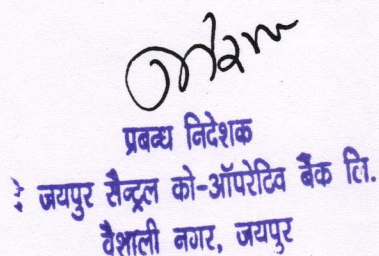 प्रबन्ध निदेशक
जयपुर सैन्ट्रल को-ऑपरेटिव बैंक लि.
वैशाली नगर, जयपुर